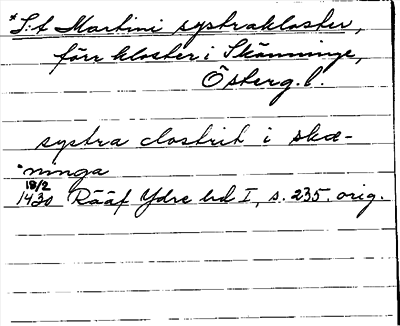 *S:t Martini systrakloster,
förr kloster i Skänninge,
Österg. l.
systra clostrit i skæ-
ninga
18/2
1430 Rääf Ydre hd I, s. 235. orig.